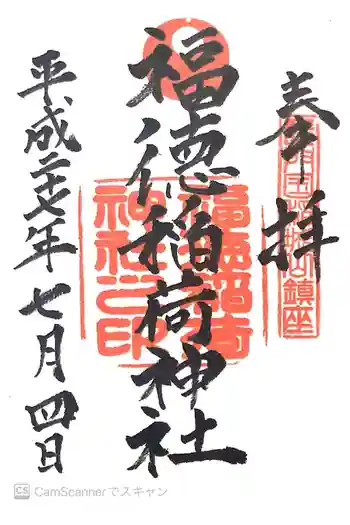 奉拝
福徳稲荷神社
福徳稲荷
神社之印
鎮座
平成二十七年七月四日
CS CamScannerでスキャン